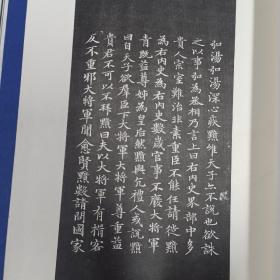 弘湯弘湯深心疾黯唯天子亦不說也欲誅
之以事弘為丞相乃言上曰右內史界部中多
貴人宗室難治非素重臣不能任請徙黯
為右內史為右內史數歲官事不廢大將軍
青既益尊姊為皇后然黯與亢禮人或說黯
曰自天子欲群臣下大將軍大將軍尊重益
貴君不可以不拜黯曰夫以大將軍有揖客
反不重邪大將軍聞愈賢黯數請問國家